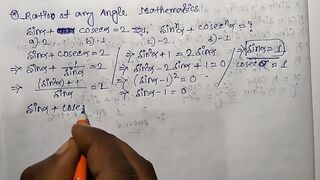 Ratio at any Angle Mathematics
sinα + cosecα = 2 sinⁿα + cosecⁿα = ?
a) -2 b) -1 c) -1 d) 2
sinα + cosecα = 2
⇒ sinα + 1/sinα = 2
⇒ (sin²α) + 1 / sinα = 2
⇒ sin²α + 1 = 2 sinα
⇒ sin²α - 2 sinα + 1 = 0
⇒ (sinα - 1)² = 0
⇒ sinα - 1 = 0
⇒ sinα = 1
cosecα = 1
sinα + cose